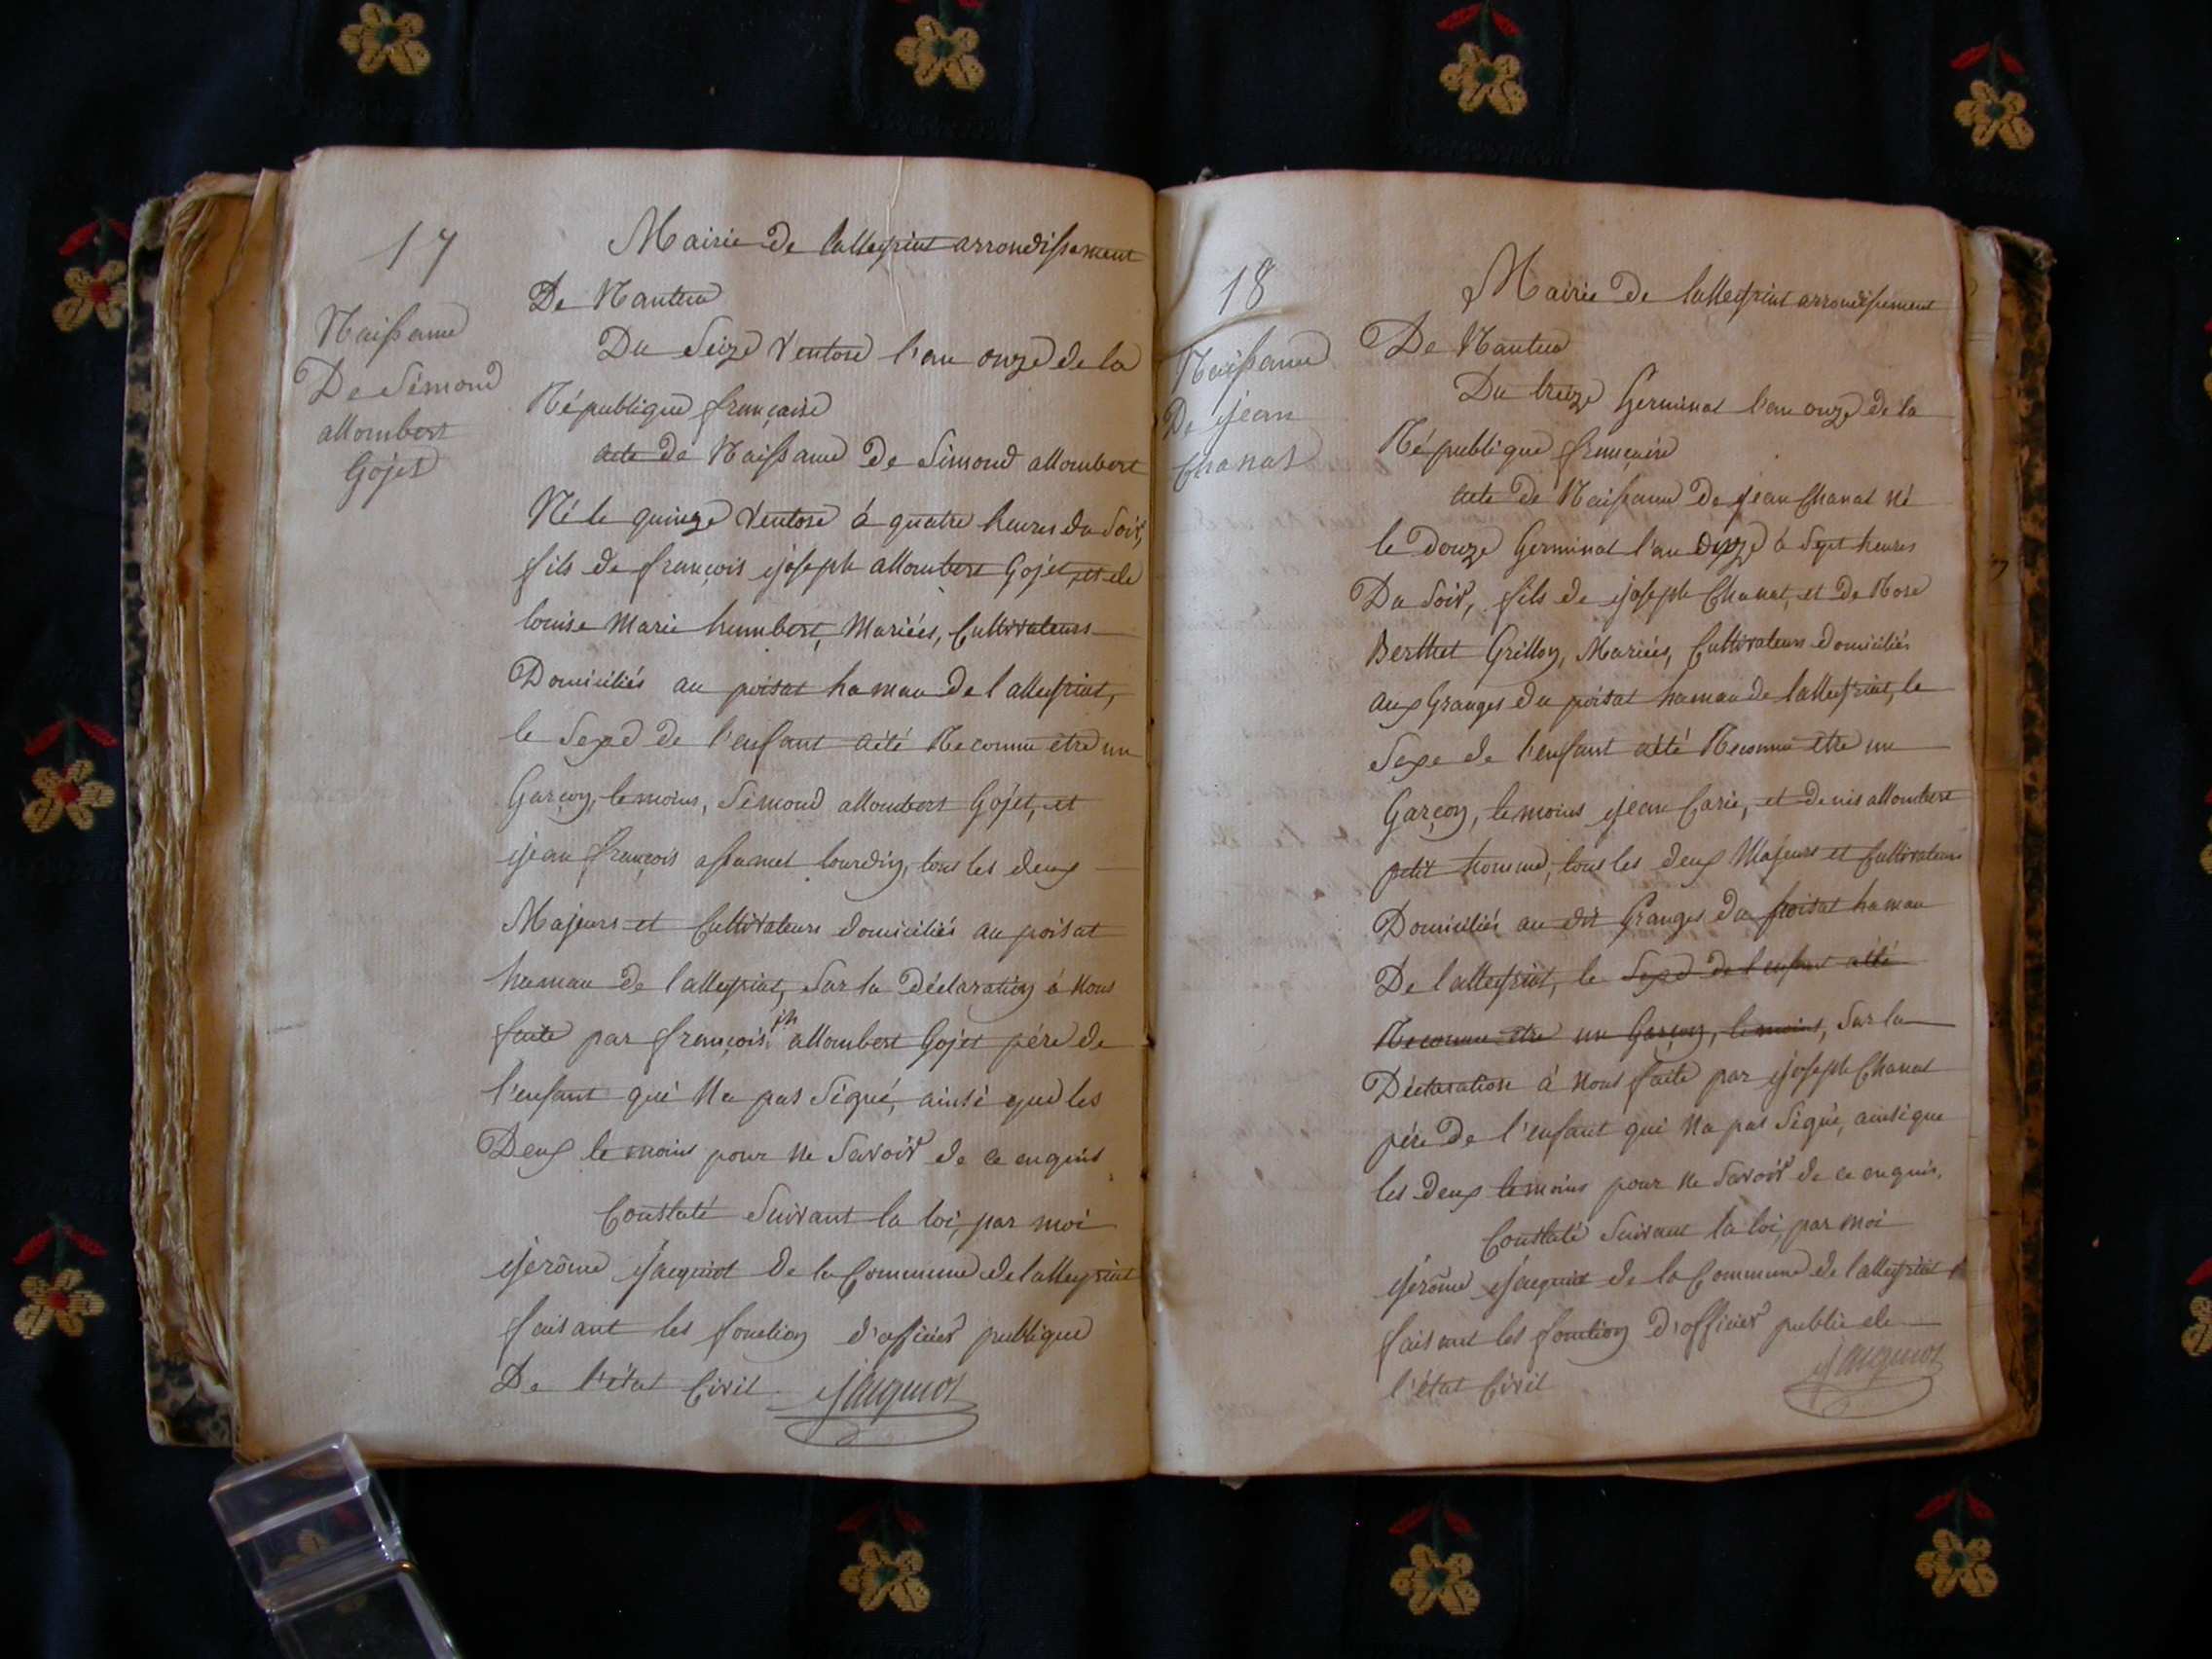 17
Naissance
De Simond
allombert
Gojet
Mairie de lalleyriat arrondissement
De Nantua
Du Seize Ventose l'an onze de la
République française
acte de Naissance de Simond allombert
Né le quinze Ventose à quatre heures du Soir,
fils de françois joseph allombert Gojet, et de
louise Marie humbert, Mariés, Cultivateurs
Domiciliés au poisat hamau de lalleyriat,
le Sexe de l'enfant a été Reconnu être un
Garçon, temoins, Simond allombert Gojet, et
jean françois assumet lourdin, tous les deux
Majeurs et Cultivateurs domiciliés au poisat
hamau de lalleyriat, Sur la Déclaration à Nous
faite par françois jh allombert Gojet pére de
l'enfant qui Na pas Signé, ainsi que les
Deux temoins pour Ne Savoir de ce enquis
Constaté Suivant la loi, par moi
jerôme jacquiot De la Commune de lalleyriat
faisant les fonction d'officier publique
De l'état Civil. jacquiot
18
Naissance
De jean
Chanat
Mairie De lalleyriat arrondissement
De Nantua
Du treize Germinal l'an onze de la
République française
acte De Naissance De jean Chanat Né
le Douze Germinal l'an onze à Sept heures
Du Soir, fils de joseph Chanat, et De Rose
Berthet Grillon, Mariés, Cultivateurs domiciliés
aux Granges du poisat hamau de lalleyriat, le
Sexe de l'enfant a été Reconnu être un
Garçon, temoins jean Carie, et denis allombert
petit homme, tous les deux Majeurs et Cultivateurs
Domiciliés au dit Granges du poisat hamau
De lalleyriat, le Sexe de l'enfant a été
Reconnu être un Garçon, temoins, Sur la
Déclaration à Nous faite par joseph Chanat
pére De l'enfant qui Na pas Signé, ainsi que
les deux temoins pour Ne Savoir de ce enquis,
Constaté Suivant la loi, par moi
jerôme jacquiot de la Commune de lalleyriat
faisant les fonction D'officier public de
l'état Civil jacquiot